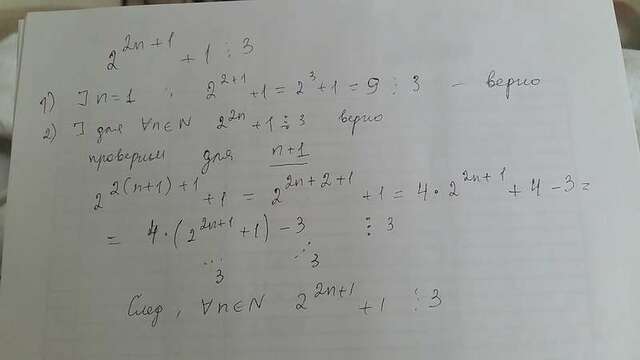 2^{2n+1} + 1 ⋮ 3
1) ] n=1 , 2^{2+1} + 1 = 2^3 + 1 = 9 ⋮ 3 – верно
2) ] для ∀n∈N 2^{2n} + 1 ⋮ 3 верно
проверим для n+1
2^{2(n+1)+1} + 1 = 2^{2n+2+1} + 1 = 4·2^{2n+1} + 4 – 3 =
= 4·(2^{2n+1} + 1) – 3 ⋮ 3
⋮ 3 ⋮ 3
След, ∀n∈N 2^{2n+1} + 1 ⋮ 3